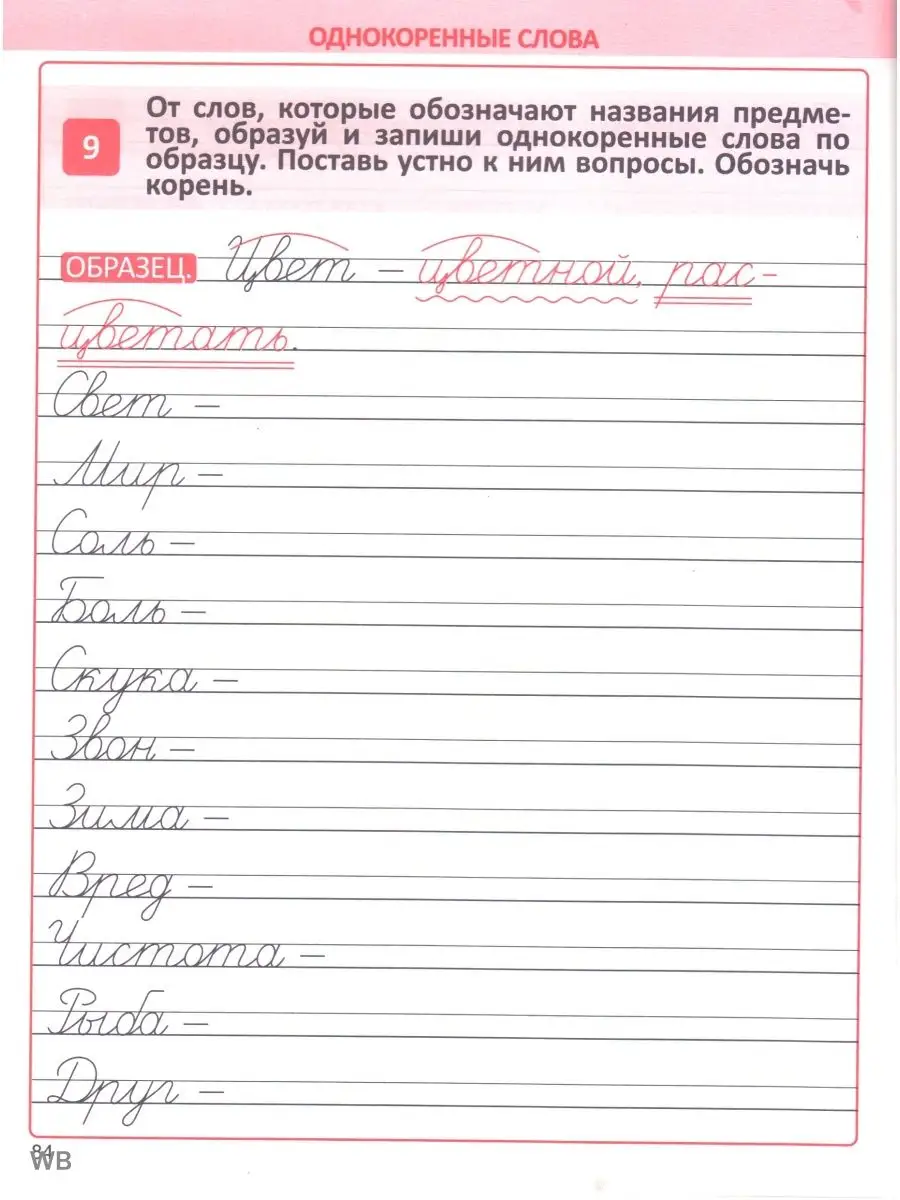 ОДНОКОРЕННЫЕ СЛОВА
9
От слов, которые обозначают названия предме-
тов, образуй и запиши однокоренные слова по
образцу. Поставь устно к ним вопросы. Обозначь
корень.
ОБРАЗЕЦ. Цвет – цветной, рас-
цветать.
Свет –
Мир –
Соль –
Боль –
Скука –
Звон –
Зима –
Вред –
Чистота –
Рыба –
Друг –
84
WB